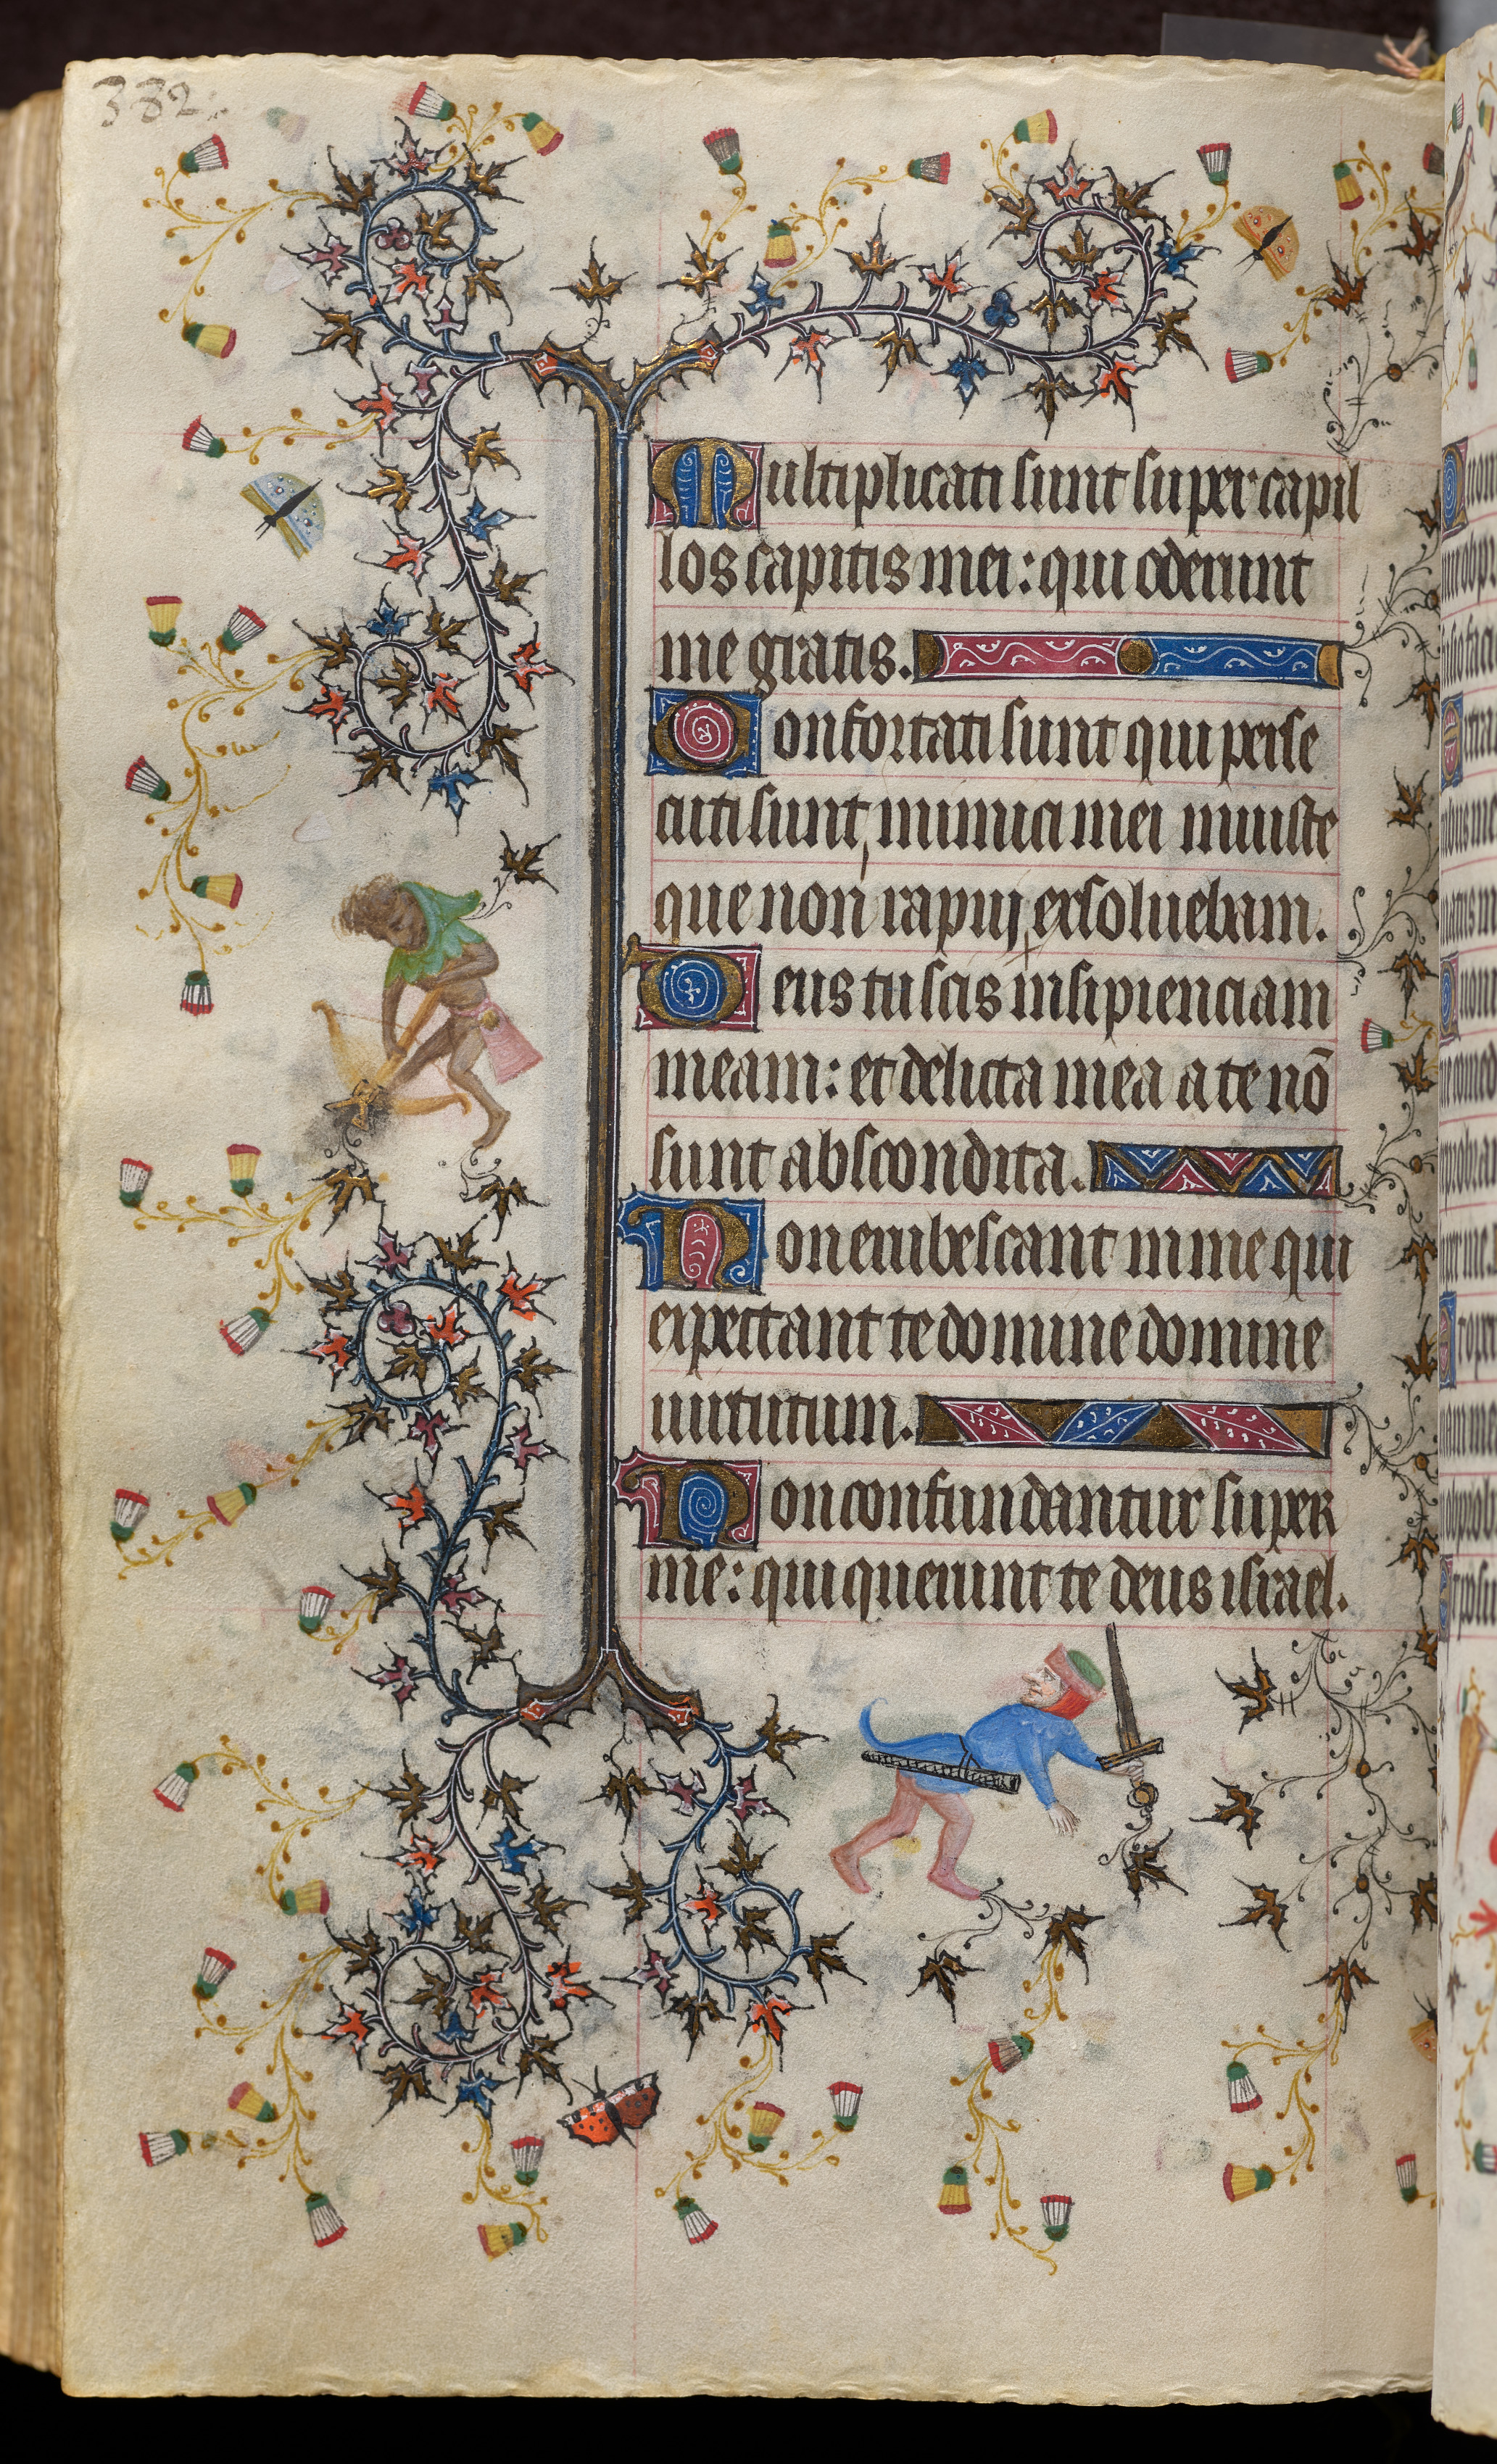 382
Multiplicati sunt super capil
los capitis mei: qui oderunt
me gratis.
Confortati sunt qui perse
cuti sunt, inimici mei iniuste
que non rapui, exsoluebam.
Deus tu scis insipienciam
meam: et delicta mea a te nō
sunt abscondita.
Non erubescant in me qui
expectant te domine domine
uirtutum.
Non confundantur super
me: qui querunt te deus israel.